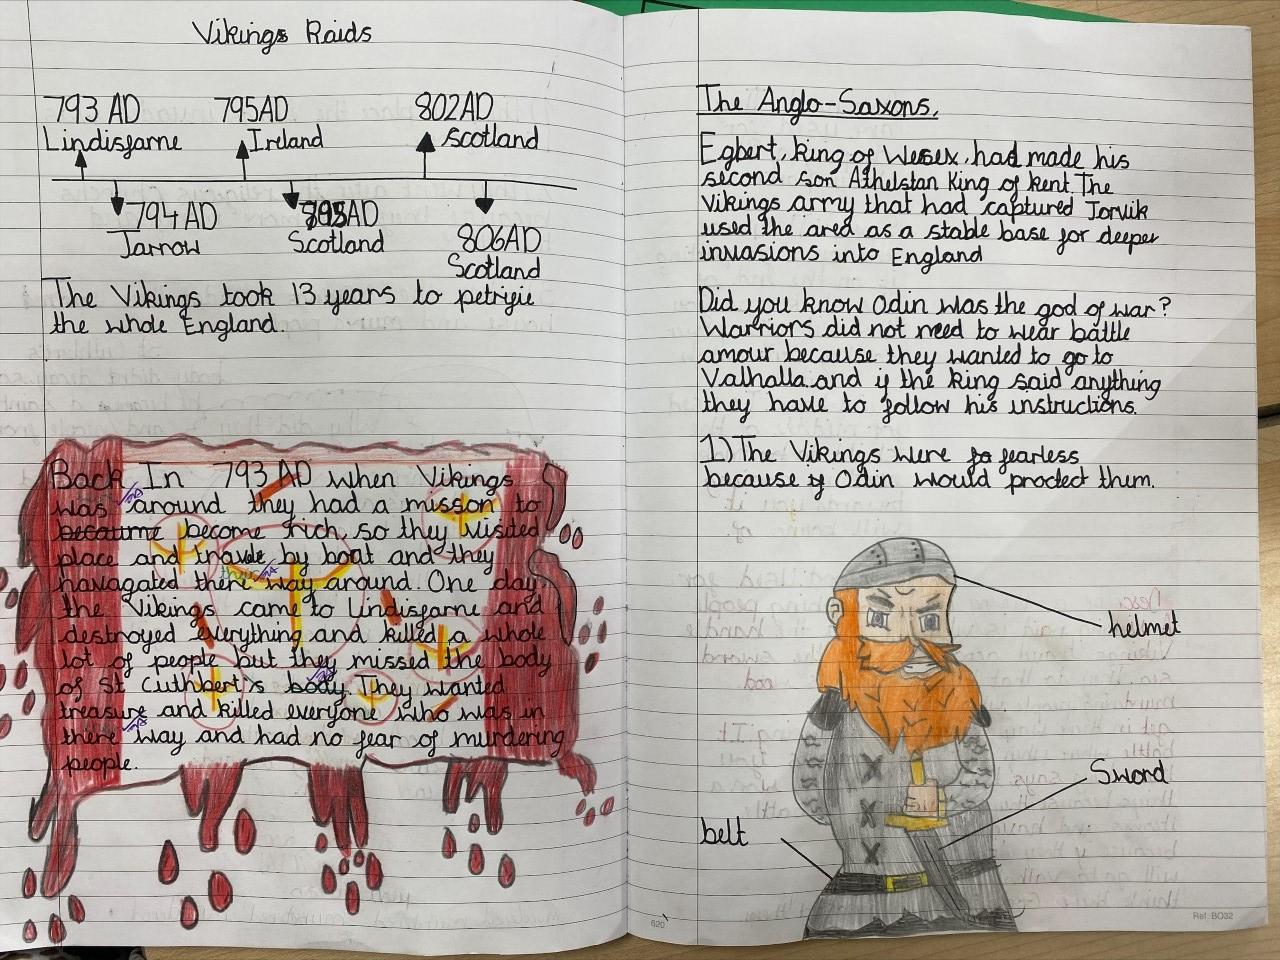 Vikings Raids
793 AD
Lindisfarne
795AD
Ireland
802AD
Scotland
794 AD
Jarrow
AD
Scotland
806AD
Scotland
The Vikings took 13 years to petrifie
the whole England.
Back In 793 AD when Vikings
was around they had a misson to
become rich, so they visited
place and travde by boat and they
navagated there way around. One day,
the Vikings came to Lindisfarne and
destroyed everything and killed a whole
lot of people but they missed the body
of St Cuthbert's body. They wanted
treasure and killed everyone who was in
there way and had no fear of murdering
people.
The Anglo-Saxons.
Egbert, king of Wesex, had made his
second son Athelstan King of kent. The
Vikings army that had captured Jorvik
used the area as a stable base for deeper
invasions into England
Did you know Odin was the god of war?
Warriors did not need to wear battle
amour because they wanted to go to
Valhalla.and if the king said anything
they have to follow his instructions.
1.) The Vikings were fearless
because if Odin would protect them.
helmet
Sword
belt
620
Ref: BO32